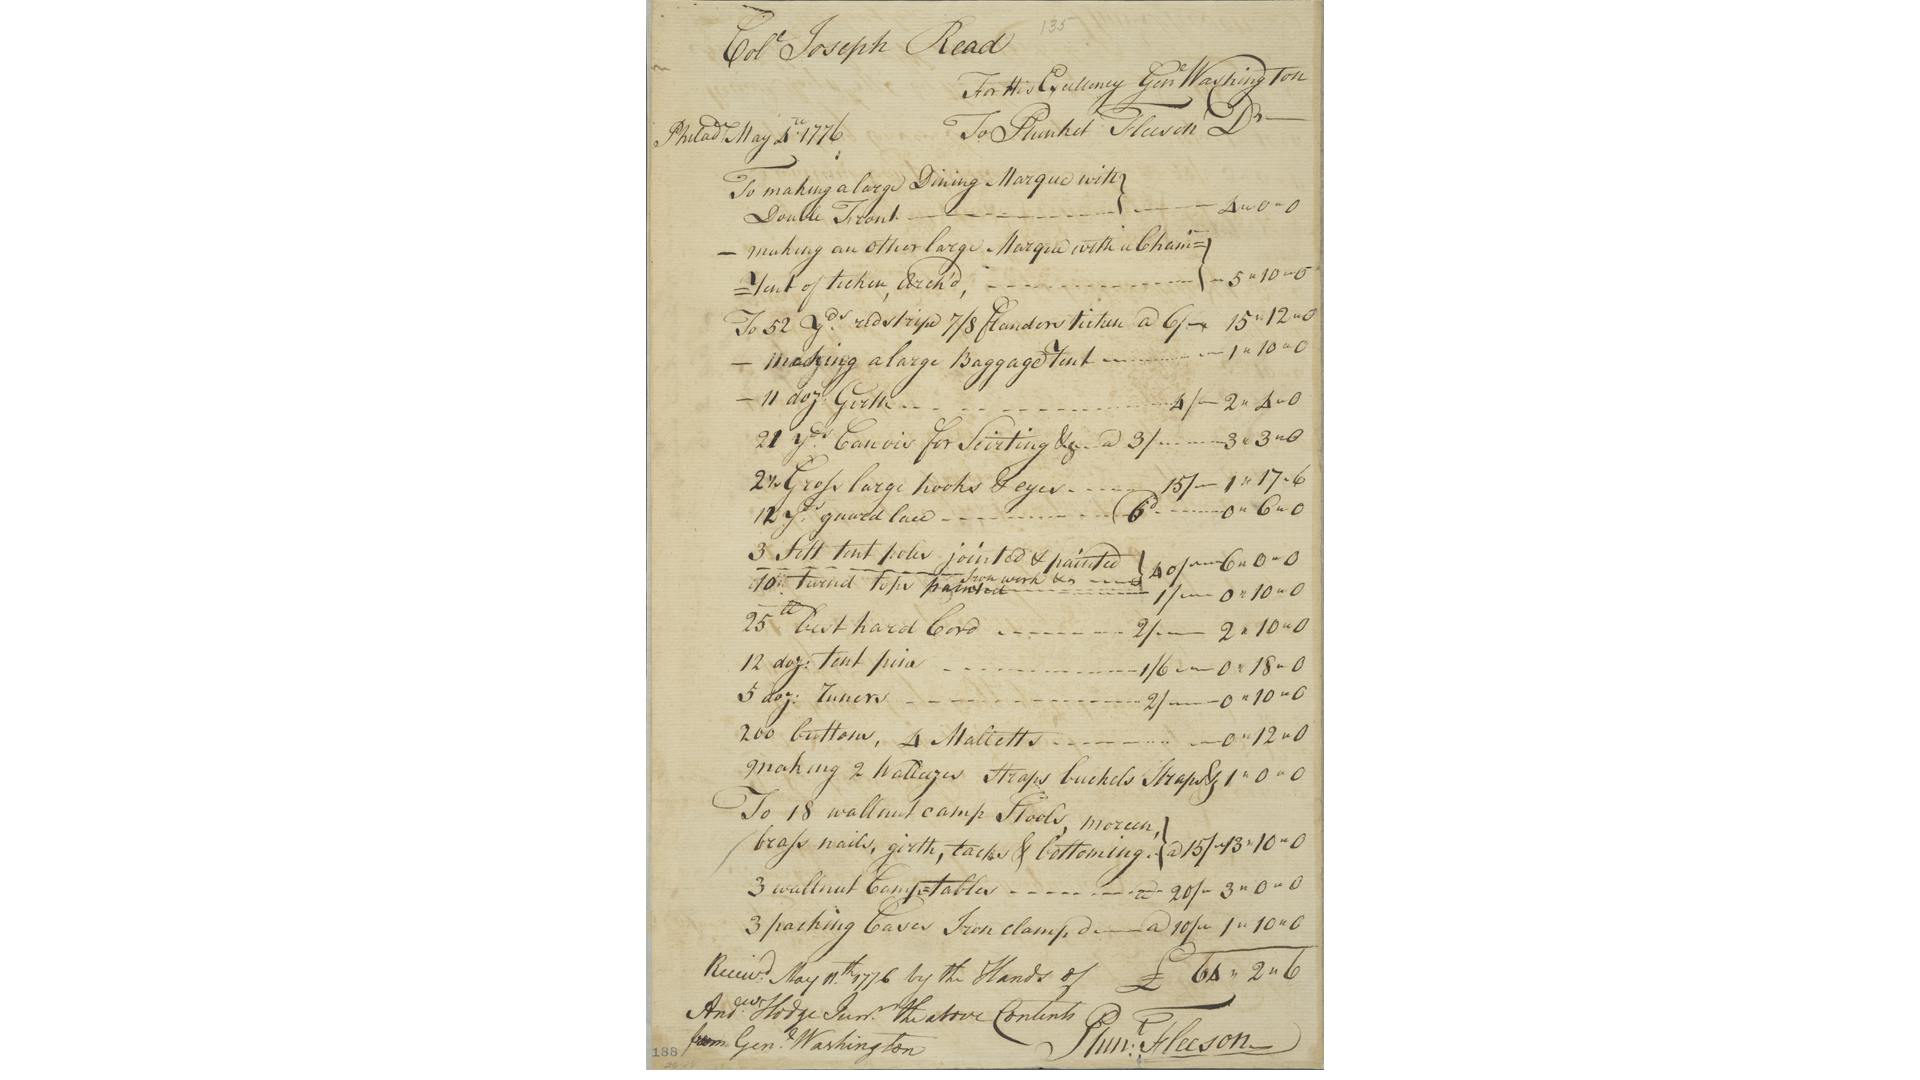 135
Colº Joseph Read
For His Excellency Genl Washington
Philada May 4th 1776
To Plunket Fleeson Dr
To making a large Dining Marque with
Double Front 4 " 0 " 0
- making an other large Marque with a Cham=
=Tent of ticken, Arch'd, 5 " 10 " 0
To 52 Yds red stripe 7/8 flanders ticken @ 6/ 15 " 12 " 0
- making a large Baggage Tent 1 " 10 " 0
- 11 doz: Girth 4/ 2 " 4 " 0
21 Yds Canvis for Scirting &c @ 3/ 3 " 3 " 0
2½ Gross large hooks & eyes 15/ 1 " 17 " 6
12 Yds guard lace 6d 0 " 6 " 0
3 Sett tent poles jointed & painted 40/ 6 " 0 " 0
Iron work &c
10 turnd tops painted 1/ 0 " 10 " 0
25 lb best hard Cord 2/ 2 " 10 " 0
12 doz: tent pins 1/6 0 " 18 " 0
5 doz: 2/ 0 " 10 " 0
200 buttons, 4 Malletts 0 " 12 " 0
making 2 straps buckels Straps & 1 " 0 " 0
To 18 wallnut camp Stools, moreen,
brass nails, girth, tacks & bottoming @ 15/ 13 " 10 " 0
3 wallnut Camp=tables @ 20/ 3 " 0 " 0
3 packing Cases Iron clamp'd @ 10/ 1 " 10 " 0
£ 64 " 2 " 6
Receivd May 11th 1776 by the Hands of
Andew Hodge Junr the above Contents
from Genl Washington
Plunt Fleeson
188